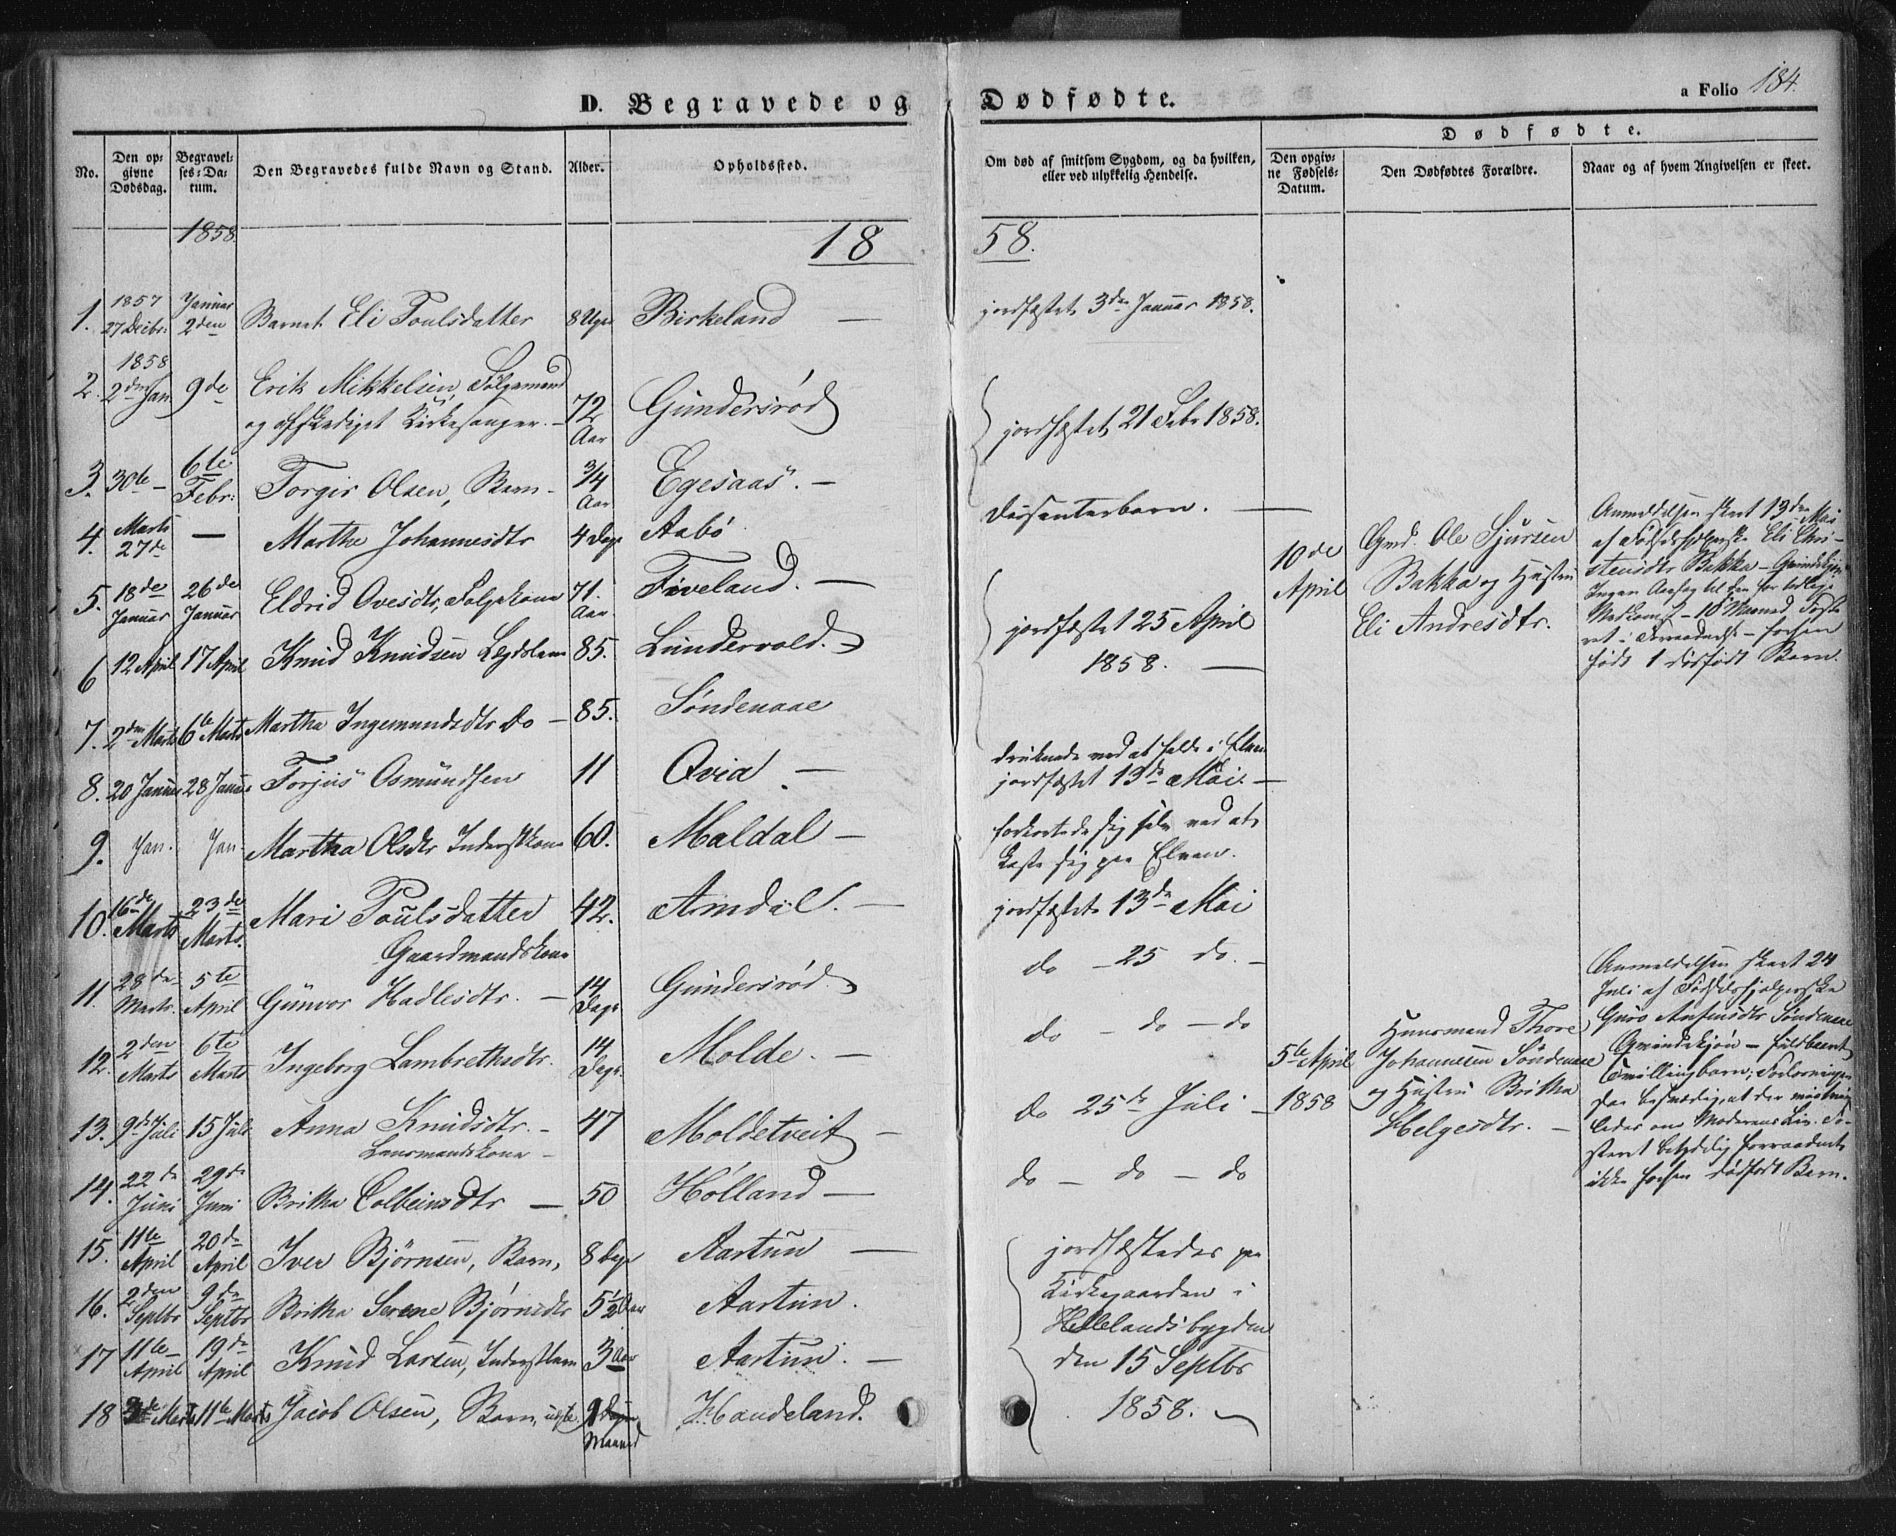 D. Begravede og Dødfødte.
a Folio 184.
No.
Den op-
givne
Dødsdag.
Begravel-
ses-Da-
tum.
Den Begravedes fulde Navn og Stand.
Alder.
Opholdssted.
Om død af smitsom Sygdom, og da hvilken,
eller ved ulykkelig Hendelse.
Dødfødte.
Den opgiv-
ne Fødsels-
Datum.
Den Dødfødtes Forældre.
Naar og af hvem Angivelsen er skeet.
1858
18 58.
1. 1857 27 Decbr: Januar 2den Barnet Eli Poulsdatter 8 Uger Birkeland —
jordfæstet 3de Januar 1858.
2. 1858 2den Jan. 9de Erik Mikkelsen, Følgemand
og afskediget Kirkesanger. — 72 Aar Gundersrød
jordfæstet 21 Febr 1858.
3. 30te — 6te Febr: Torgir Olsen, Barn — 3/4 Aar Egesaas. —
4. Marts 27de — Martha Johannesdtr 4 Dage Aabø
Dissenterbarn. —
5. 18de Januar 26de Januar Eldrid Ovesdtr, Følgekone 71. Aar Fiveland. —
6 12 April 17 April Knud Knudsen Lægdslem 85. Lundervold.
jordfæstet 25 April
1858. —
7. 2den Marts 6te Marts Martha Ingemundsdtr Do — 85. Søndenaae
8. 20 Januar 28 Januar Torjus Osmundsen 11 Qvia —
druknede ved at falde i Elven
jordfæstet 13de Mai. —
9. Jan. Jan. Martha Olsdtr Inderstkone 60. Maldal —
forkortede sig selv ved at
kaste sig paa Elven.
10. 16de Marts 23de Marts. Mari Poulsdatter 42. Amdal. —
Gaardmandskone
jordfæstet 13de Mai
11. 28de Marts. 5te April Gunvor Kadlesdtr. — 14 Dage Gundersrød.
do — 25 do. —
12. 2den Marts 6te Marts Ingeborg Lambrethsdtr. 14 Dage. Molde. —
do — do — do
13. 9de Juli 15 Juli Anna Knudsdtr. — 47 Moldetveit —
Lensmandskone —
do 25de Juli —
14. 22de Juni 29de Juni Britha Colbeinsdtr — 50 Hølland —
do — do — do
15. 11te April 20de April Iver Bjørnsen, Barn, 8 Dage Aartun —
16. 2den Septbr 9de Septbr Britha Serene Bjørnsdtr 5 1/2 Aar Aartun.
17 11te April 19de April Knud Larsen, Inderstlem 3 Aar Aartun. —
18 3de Marts 11te Marts Jacob Olsen, Barn, 1 Maaned Haudeland.
jordfæstedes paa
Kirkegaarden i
Hellelandsbygden
den 15 Septbr
1858.
10de
April
Gmd. Ole Sjursen
Bakka og Hustru
Eli Andresdtr.
Anmeldelsen skeet 13de Mai
af Fødselshjelperske Eli Chri-
stensdtr Bakka —
født 1 dødfødt Barn.
5te April
1858
Huusmand Thore
Johannesen Søndenaae
og Hustru Britha
Helgesdtr. —
Anmeldelsen skeet 24
Juli af Fødselshjelperske
Guro Anfinsdtr Søndenaae
Qvindekjøn — fuldbaaret
Tvillingbarn; Forløsningen
saa besværlig, at der
om Moderens Liv.
ikke forhen dødfødt Barn.